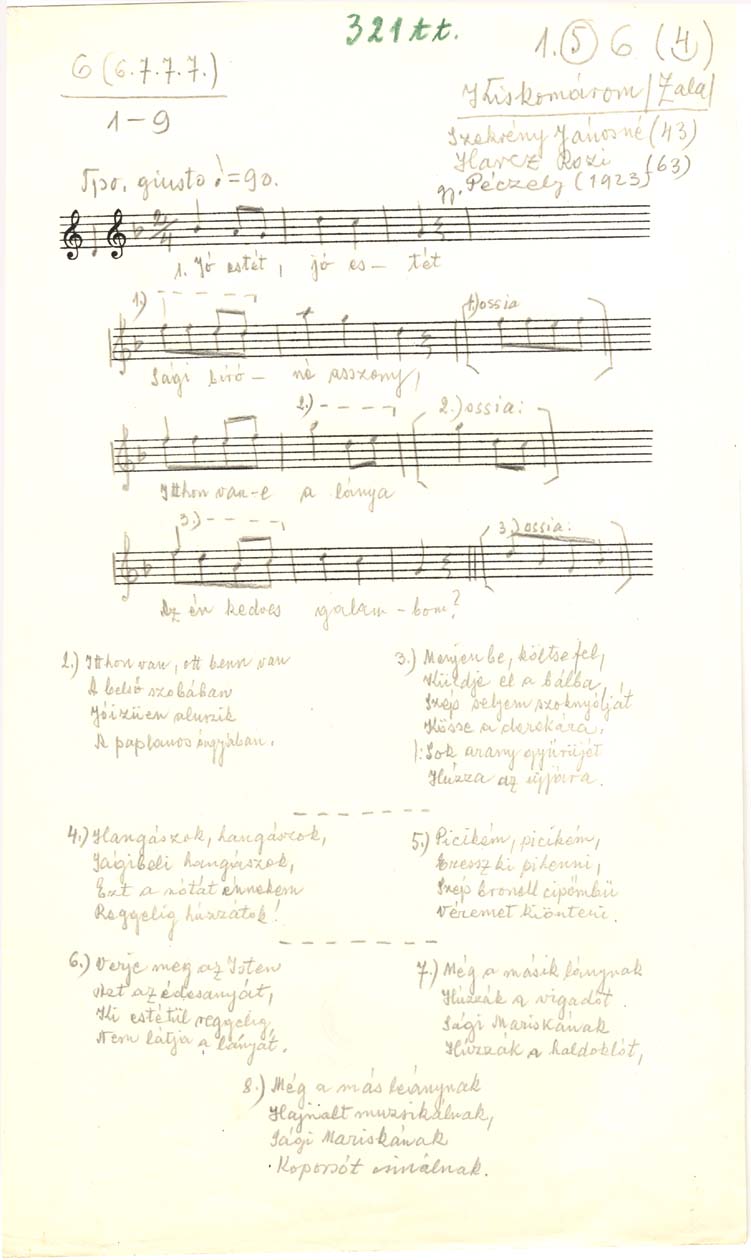 321 tt.
1. 5 6 (4)
6 (6.7.7.7.)
1-9
Kiskomárom /Zala/
Szekrény Jánosné (43)
Harcz Rozi (63)
gy. Péczely (1923)
Tpo. giusto ♩=90.
2/4
1. Jó estét, jó es- tét
1.) 1.) ossia
Sági bíró- né asszony,
2.) 2.) ossia:
Itthon van-e a lánya
3.) 3.) ossia:
Az én kedves galam-bom?
2.) Itthon van, ott benn van
A belső szobában
Jóizüen aluszik
A paplanos ágyában.
3.) Menjen be, költse fel,
Küldje el a bálba,
Szép selyem szoknyáját
Kösse a derekára.
/: Sok arany gyűrűjét
Húzza az ujjára.
4.) Hangászok, hangászok,
Ságibeli hangászok,
Ezt a nótát ennekem
Reggelig húzzátok!
5.) Picikém, picikém,
Eressz ki pihenni,
Szép cipőmbü
Véremet kiönteni.
6.) Verje meg az Isten
Azt az édesanyát,
Ki estétül reggelig
Nem látja a lányát.
7.) Még a másik lánynak
Húzzák a vigadót.
Sági Mariskának
Húzzák a haldoklót,
8.) Még a más leánynak
Hajnalt muzsikálnak,
Sági Mariskának
Koporsót csinálnak.